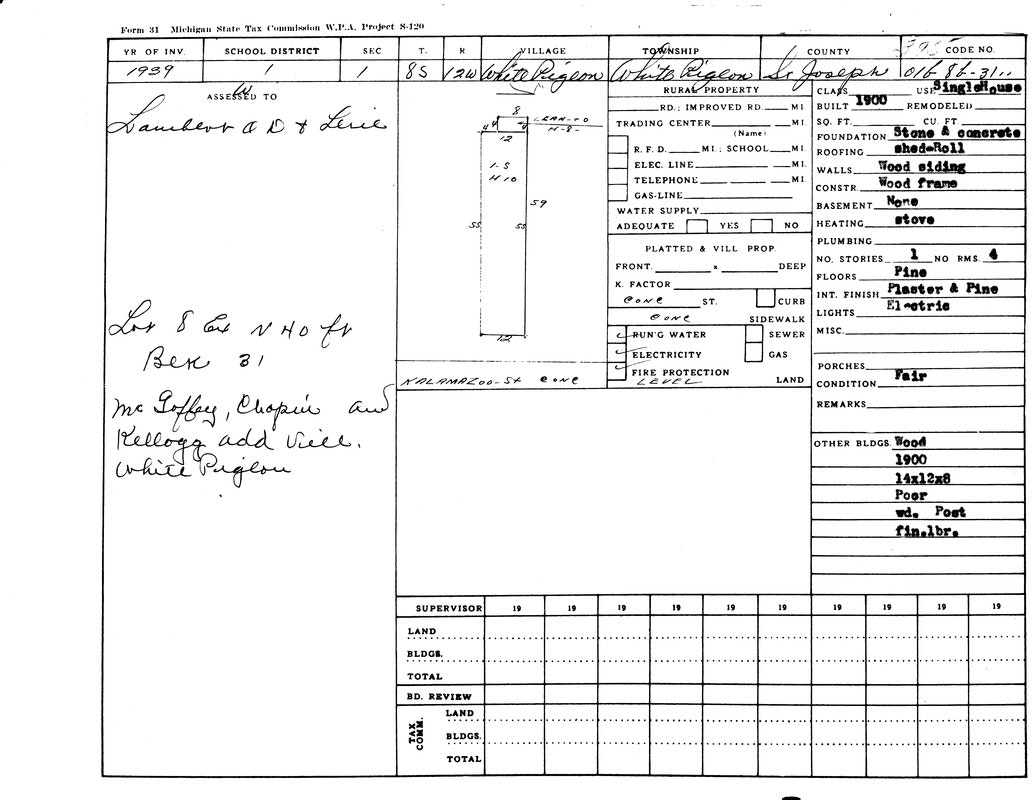 Form 31 Michigan State Tax Commission W.P.A. Project S-120
YR OF INV. SCHOOL DISTRICT SEC T. R VILLAGE TOWNSHIP COUNTY CODE NO.
1939 1 1 8S 12W White Pigeon White Pigeon St Joseph 016 86-31
ASSESSED TO
Lambert A D &
Lot 8 Ex N 40 ft
Blk 31
Mc Goffey, Chapin and
Kellogg add Vill.
White Pigeon
8
LEAN-TO
H-8-
4 4
12
1-S
H 10
59
55 55
12
KALAMAZOO-St CONC
RURAL PROPERTY
RD.; IMPROVED RD. MI.
TRADING CENTER MI.
(Name)
R. F. D. MI.; SCHOOL MI.
ELEC. LINE MI.
TELEPHONE MI.
GAS-LINE
WATER SUPPLY
ADEQUATE YES NO
PLATTED & VILL PROP.
FRONT. x DEEP
K. FACTOR
CONC ST. CURB
CONC SIDEWALK
RUN'G WATER SEWER
ELECTRICITY GAS
FIRE PROTECTION
LEVEL LAND
CLASS USE Single House
BUILT 1900 REMODELED
SQ. FT. CU. FT.
FOUNDATION Stone & concrete
ROOFING shed-Roll
WALLS Wood siding
CONSTR. Wood frame
BASEMENT None
HEATING stove
PLUMBING
NO. STORIES 1 NO RMS. 4
FLOORS Pine
INT. FINISH Plaster & Pine
LIGHTS Electric
MISC.
PORCHES
CONDITION Fair
REMARKS
OTHER BLDGS. Wood
1900
14x12x8
Poor
wd. Post
fin.lbr.
SUPERVISOR 19 19 19 19 19 19 19 19 19 19
LAND
BLDGS.
TOTAL
BD. REVIEW
TAX COMM.
LAND
BLDGS.
TOTAL